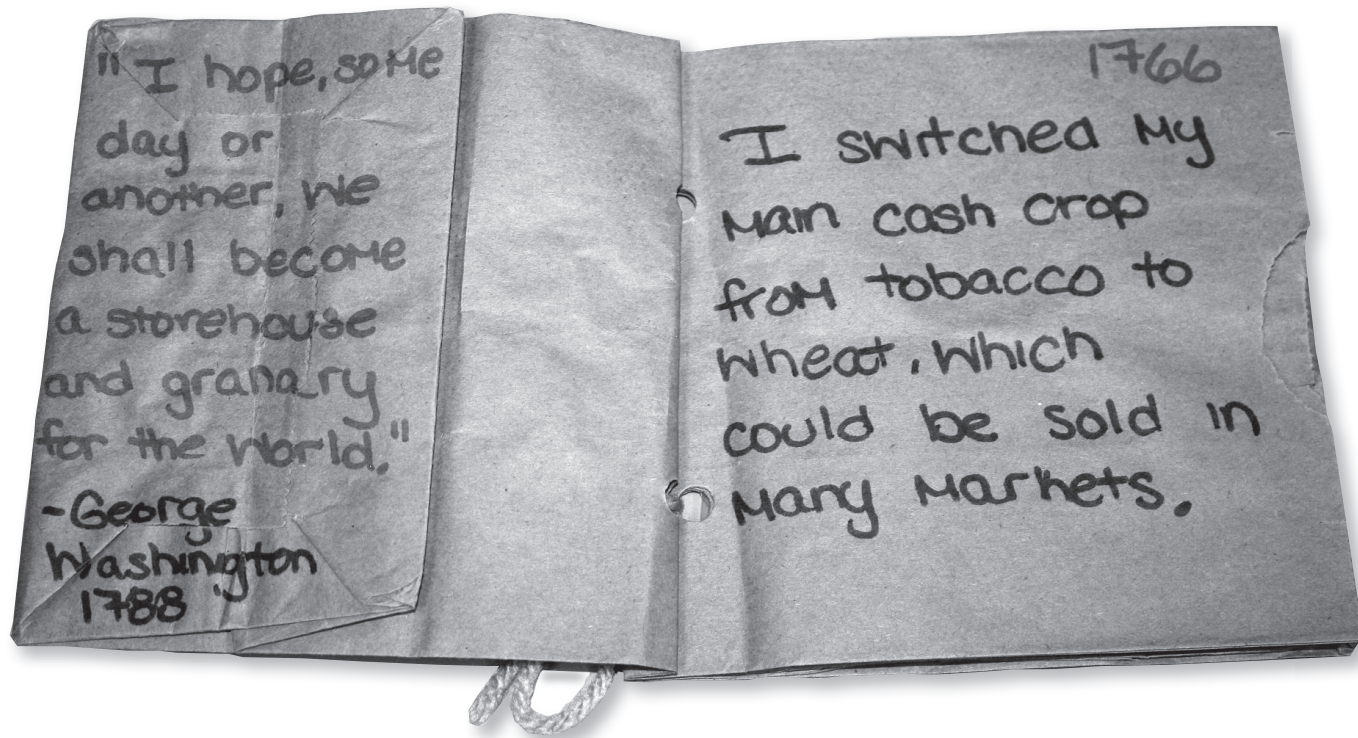 "I hope, some
day or
another, we
shall become
a storehouse
and granary
for the world."
-George
Washington
1788
1766
I switched my
main cash crop
from tobacco to
wheat, which
could be sold in
many markets.